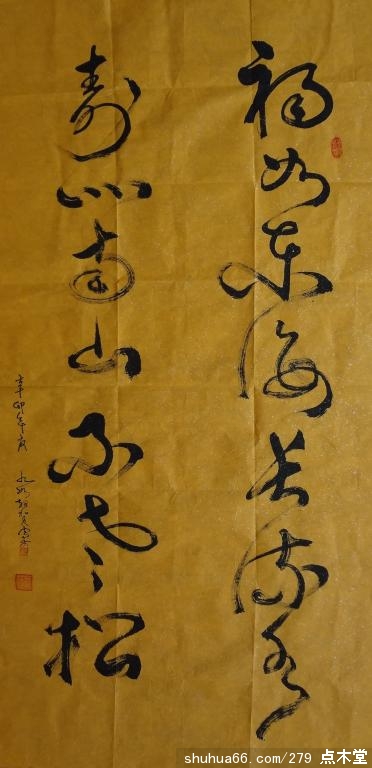 福如东海长流水
寿似南山不老松
辛卯年
shuhua66.com/279 点木堂